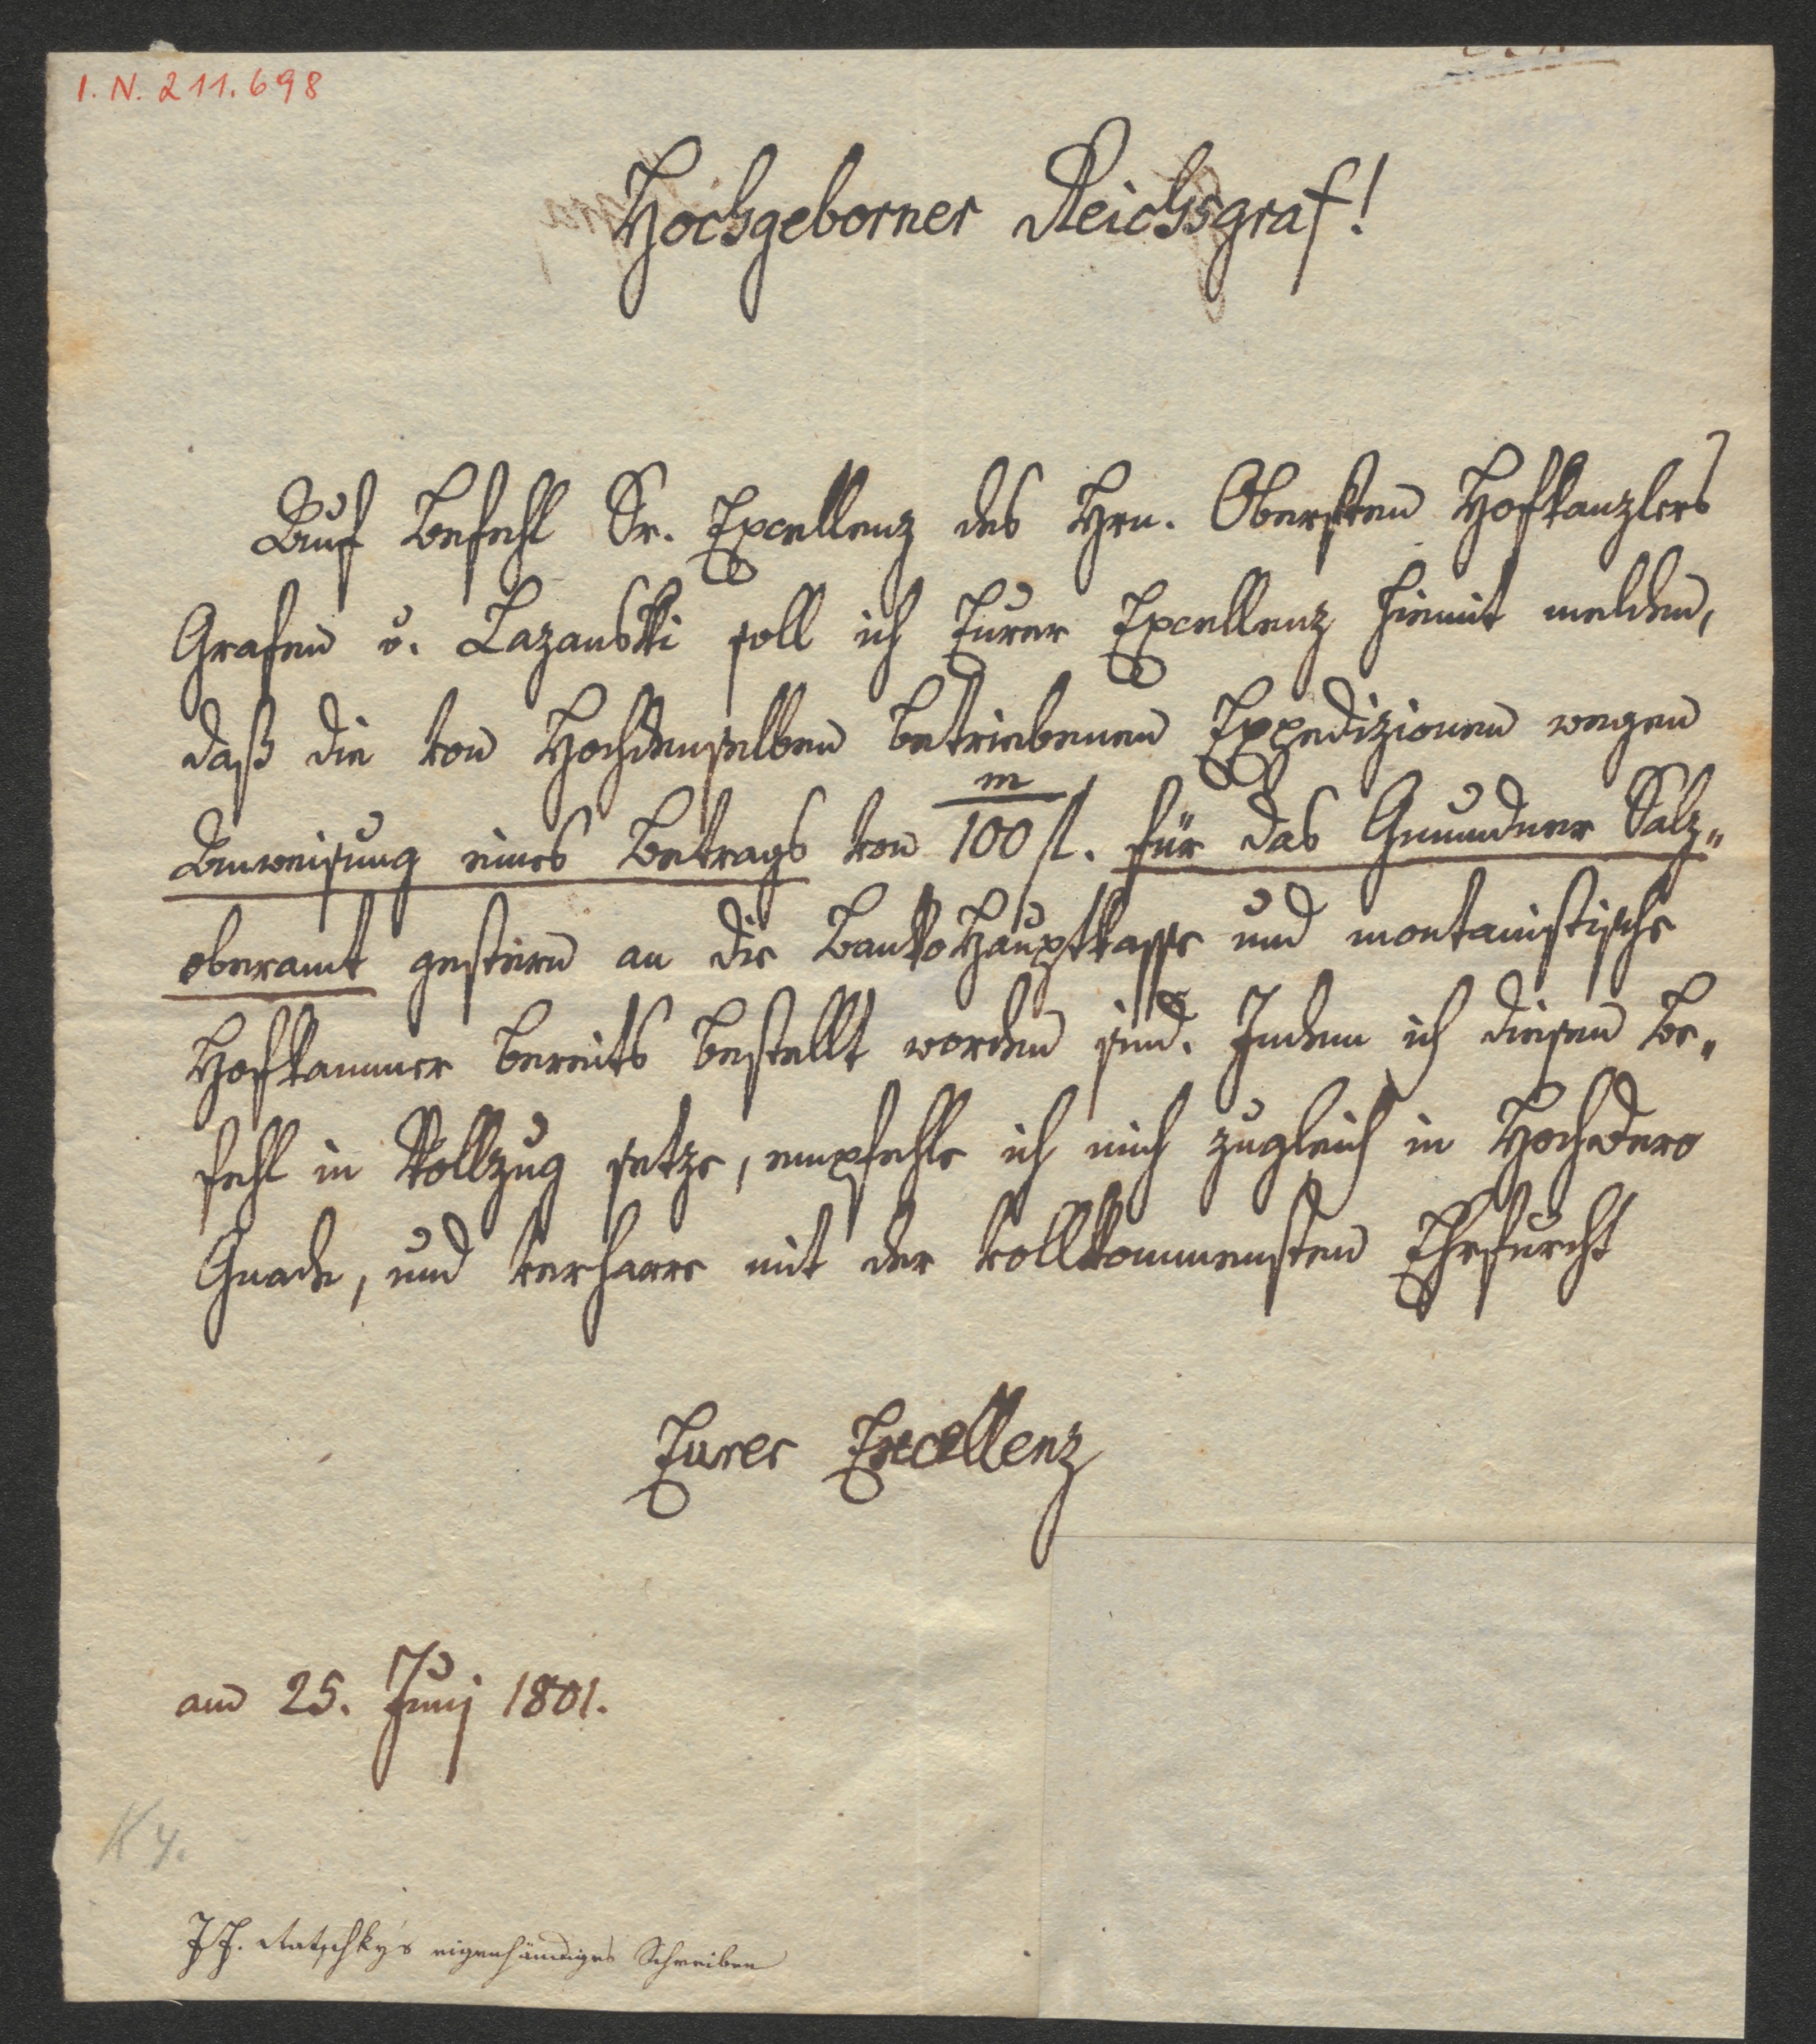 I. N. 211.698
Hochgeborner Reichsgraf!
Auf Befehl Sr. Excellenz des Hrn. Obersten Hofkanzlers
Grafen v. Lazanski soll ich Eurer Excellenz hiemit melden,
daß die von Hochdenselben betriebenen Expedizionen wegen
Anweisung eines Betrags von m/100 fl. für das Gmundner Salz„
oberamt gestern an die Banko Hauptkasse und montanistische
Hofkammer bereits bestellt worden sind. Indem ich diesen Be„
fehl in Vollzug setze, empfehle ich mich zugleich in Hochdero
Gnade, und verharre mit der vollkommensten Ehrfurcht
Eurer Excellenz
am 25. Junj 1801.
K 4.
J. F. Ratschky's eigenhändiges Schreiben